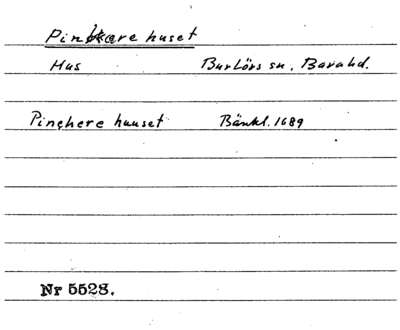 Pinkare huset
Hus Burlövs sn. Bara hd.
Pinchere huuset Bänkl. 1689
Nr 5528.